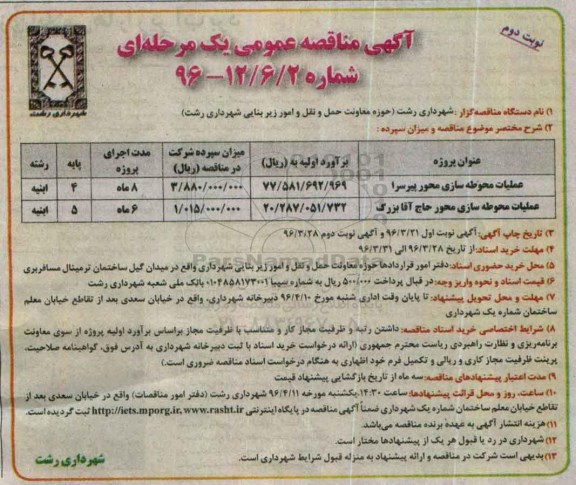 نوبت دوم
آگهی مناقصه عمومی یک مرحله‌ای
شماره ۱۲/۶/۲- ۹۶
شهرداری رشت
۱) نام دستگاه مناقصه‌گزار : شهرداری رشت (حوزه معاونت حمل و نقل و امور زیر بنایی شهرداری رشت)
۲) شرح مختصر موضوع مناقصه و میزان سپرده :
عنوان پروژه | برآورد اولیه به (ریال) | میزان سپرده شرکت در مناقصه (ریال) | مدت اجرای پروژه | پایه | رشته
عملیات محوطه سازی محور پیرسرا | ۷۷/۵۸۱/۶۹۲/۹۶۹ | ۳/۸۸۰/۰۰۰/۰۰۰ | ۸ ماه | ۴ | ابنیه
عملیات محوطه سازی محور حاج آقا بزرگ | ۲۰/۲۸۷/۰۵۱/۷۳۲ | ۱/۰۱۵/۰۰۰/۰۰۰ | ۶ ماه | ۵ | ابنیه
۳) تاریخ چاپ آگهی: آگهی نوبت اول ۹۶/۳/۲۱ و آگهی نوبت دوم ۹۶/۳/۲۸
۴) مهلت خرید اسناد: از تاریخ ۹۶/۳/۲۸ الی ۹۶/۳/۳۱
۵) محل خرید حضوری اسناد: دفتر امور قراردادها حوزه معاونت حمل و نقل و امور زیر بنایی شهرداری واقع در میدان گیل ساختمان ترمینال مسافربری
۶) قیمت اسناد و نحوه واریز وجه: در قبال پرداخت ۵۰۰/۰۰۰ ریال به شماره سیبا ۰۱۰۴۸۵۸۱۷۳۰۰۱ بانک ملی شعبه شهرداری رشت
۷) مهلت و محل تحویل پیشنهاد: تا پایان وقت اداری شنبه مورخ ۹۶/۴/۱۰ دبیرخانه شهرداری، واقع در خیابان سعدی بعد از تقاطع خیابان معلم ساختمان شماره یک شهرداری
۸) شرایط اختصاصی خرید اسناد مناقصه: داشتن رتبه و ظرفیت مجاز کار و متناسب با ظرفیت مجاز براساس برآورد اولیه پروژه از سوی معاونت
برنامه‌ریزی و نظارت راهبردی ریاست محترم جمهوری (ارائه درخواست خرید اسناد با ثبت دبیرخانه شهرداری به آدرس فوق، گواهینامه صلاحیت،
پرینت ظرفیت مجاز کاری و ریالی و تکمیل فرم خود اظهاری به هنگام درخواست اسناد مناقصه ضروری است.)
۹) مدت اعتبار پیشنهادهای مناقصه: سه ماه از تاریخ بازگشایی پیشنهاد قیمت
۱۰) ساعت، روز و محل قرائت پیشنهادها: ساعت ۱۴:۳۰ یکشنبه مورخه ۹۶/۴/۱۱ شهرداری رشت (دفتر امور مناقصات) واقع در خیابان سعدی بعد از
تقاطع خیابان معلم ساختمان شماره یک شهرداری ضمناً آگهی مناقصه در پایگاه اینترنتی http://iets.mporg.ir, www.rasht.ir ثبت گردیده است.
۱۱) هزینه انتشار آگهی به عهده برنده مناقصه می‌باشد.
۱۲) شهرداری در رد یا قبول هر یک از پیشنهادها مختار است.
۱۳) بدیهی است شرکت در مناقصه و ارائه پیشنهاد به منزله قبول شرایط شهرداری است.
شهرداری رشت
ParsNamadData